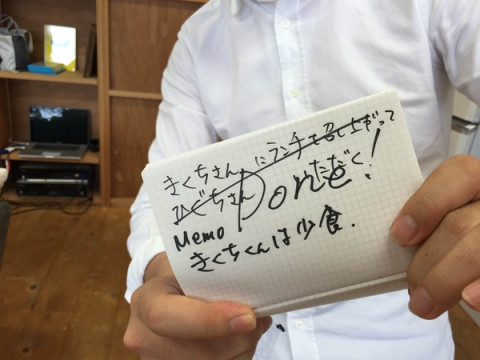 きくちさんにランチを召し上がって
ひぐちさん
いただく!
Memo Done
きくちくんは少食.